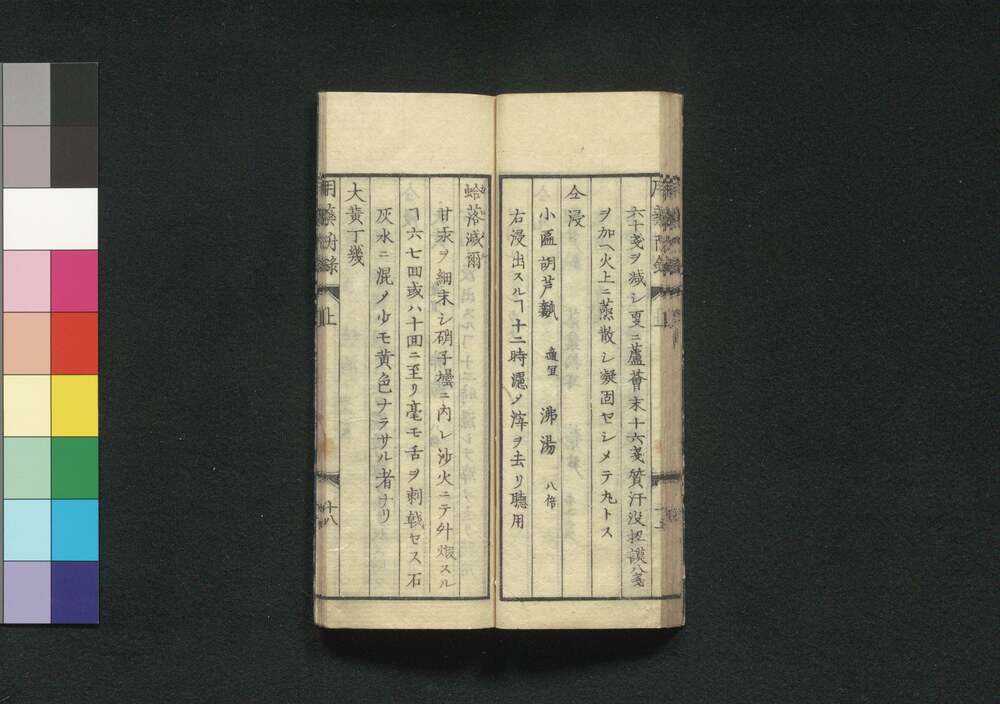 六十戔ヲ減シ更ニ蘆薈末十六戔質汗没担謨八戔
ヲ加ヘ火上ニ蒸散シ凝固セシメテ丸トス
仝浸
小匾胡芦瓢 適宜 沸湯 八倍
右浸出スルヿ十二時濾メ滓ヲ去リ聴用
蛤落滅爾
甘汞ヲ細末シ硝子壜ニ内レ沙火ニテ升煅スル
ヿ六七回或ハ十回ニ至リ毫モ舌ヲ刺戟セス石
灰水ニ混メ少モ黄色ナラサル者ナリ
大黄丁幾
用薬附録 上 十八